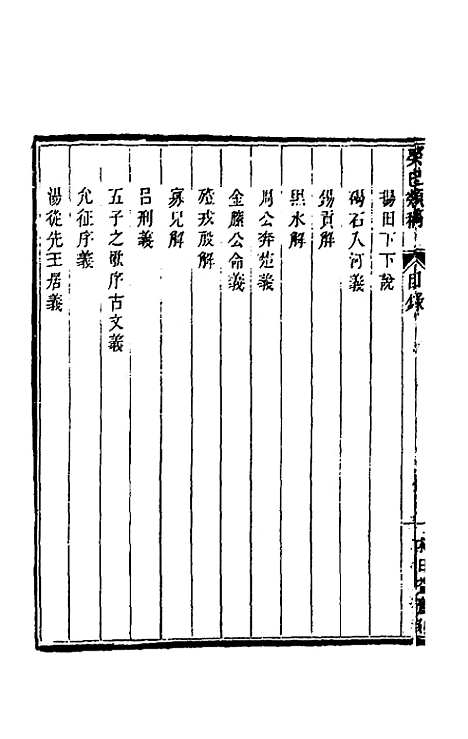 癸巳類稿
目錄
揚田下下說
碣石入河義
錫貢解
黑水解
周公奔楚義
金縢公命義
殪戎殷解
寡兄解
呂刑義
五子之歌序古文義
允征序義
湯從先王居義